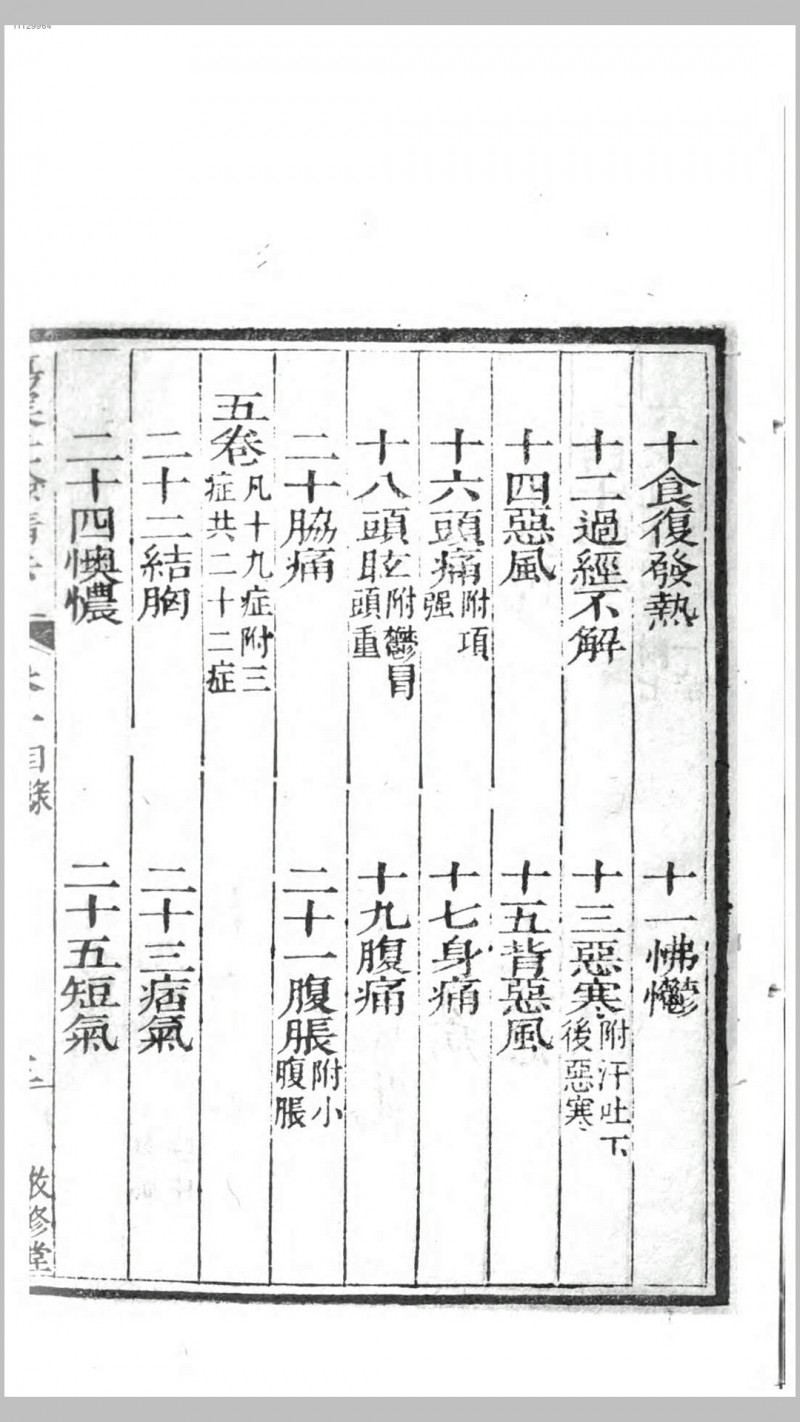 11129964
十食復發熱 十一怫鬱
十二過經不解 十三惡寒附汗吐下後惡寒
十四惡風 十五背惡風
十六頭痛附項强 十七身痛
十八頭眩附鬱冒頭重 十九腹痛
二十脇痛 二十一腹脹附小腹脹
五卷凡十九症附三症共二十二症
二十二結胸 二十三痞氣
二十四懊憹 二十五短氣
目錄
敬修堂